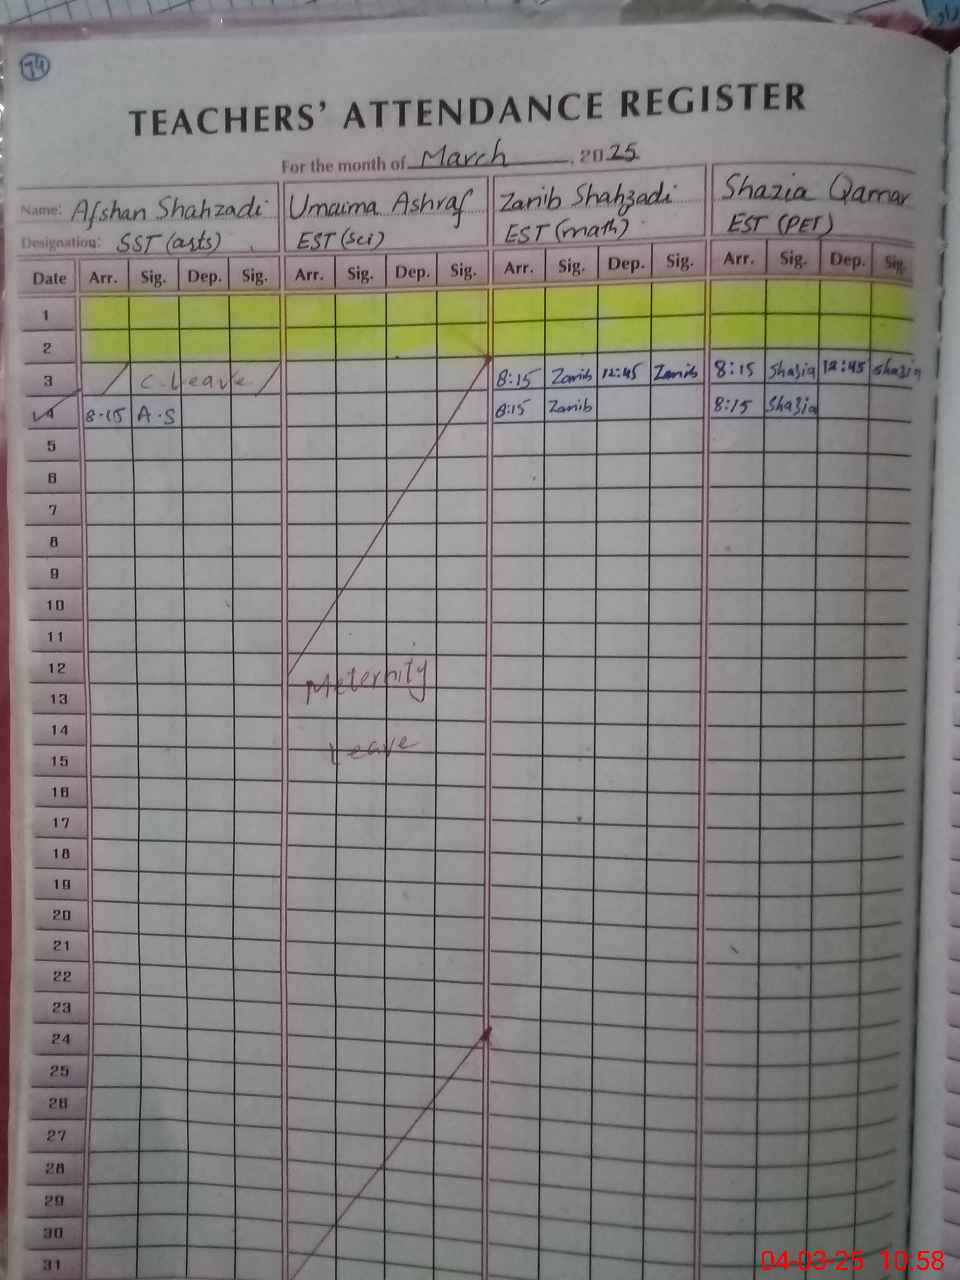 74
TEACHERS' ATTENDANCE REGISTER
For the month of March, 2025
Name: Afshan Shahzadi Umaima Ashraf Zanib Shahzadi Shazia Qamar
Designation: SST (arts) EST (sci) EST (math) EST (PET)
Date Arr. Sig. Dep. Sig. Arr. Sig. Dep. Sig. Arr. Sig. Dep. Sig. Arr. Sig. Dep. Sig.
1
2
3 C. Leave 8:15 Zanib 12:45 Zanib 8:15 Shazia 12:45 Shazia
4 8:15 A.S 8:15 Zanib 8:15 Shazia
5
6
7
8
9
10
11
12
Meternity
13
14
Leave
15
16
17
18
19
20
21
22
23
24
25
26
27
28
29
30
31
04-03-25 10:58